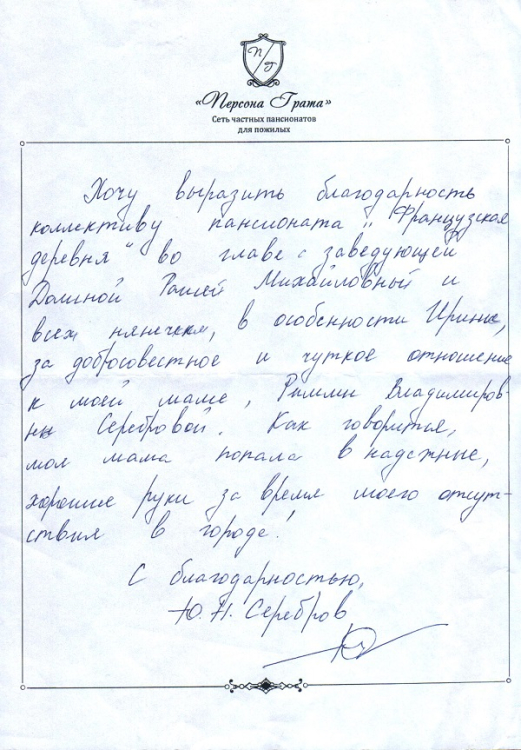 П/Г
«Персона Грата»
Сеть частных пансионатов
для пожилых
Хочу выразить благодарность
коллективу пансионата „Французская
деревня“ во главе с заведующей
Долиной Раисей Михайловной и
всех нянечкам, в особенности Ирине,
за добросовестное и чуткое отношение
к моей маме, Риммы Владимиров-
ны Серебровой. Как говориться,
моя мама попала в надежные,
хорошие руки за время моего отсут-
ствия в городе!
С благодарностью,
Ю.Н. Серебров